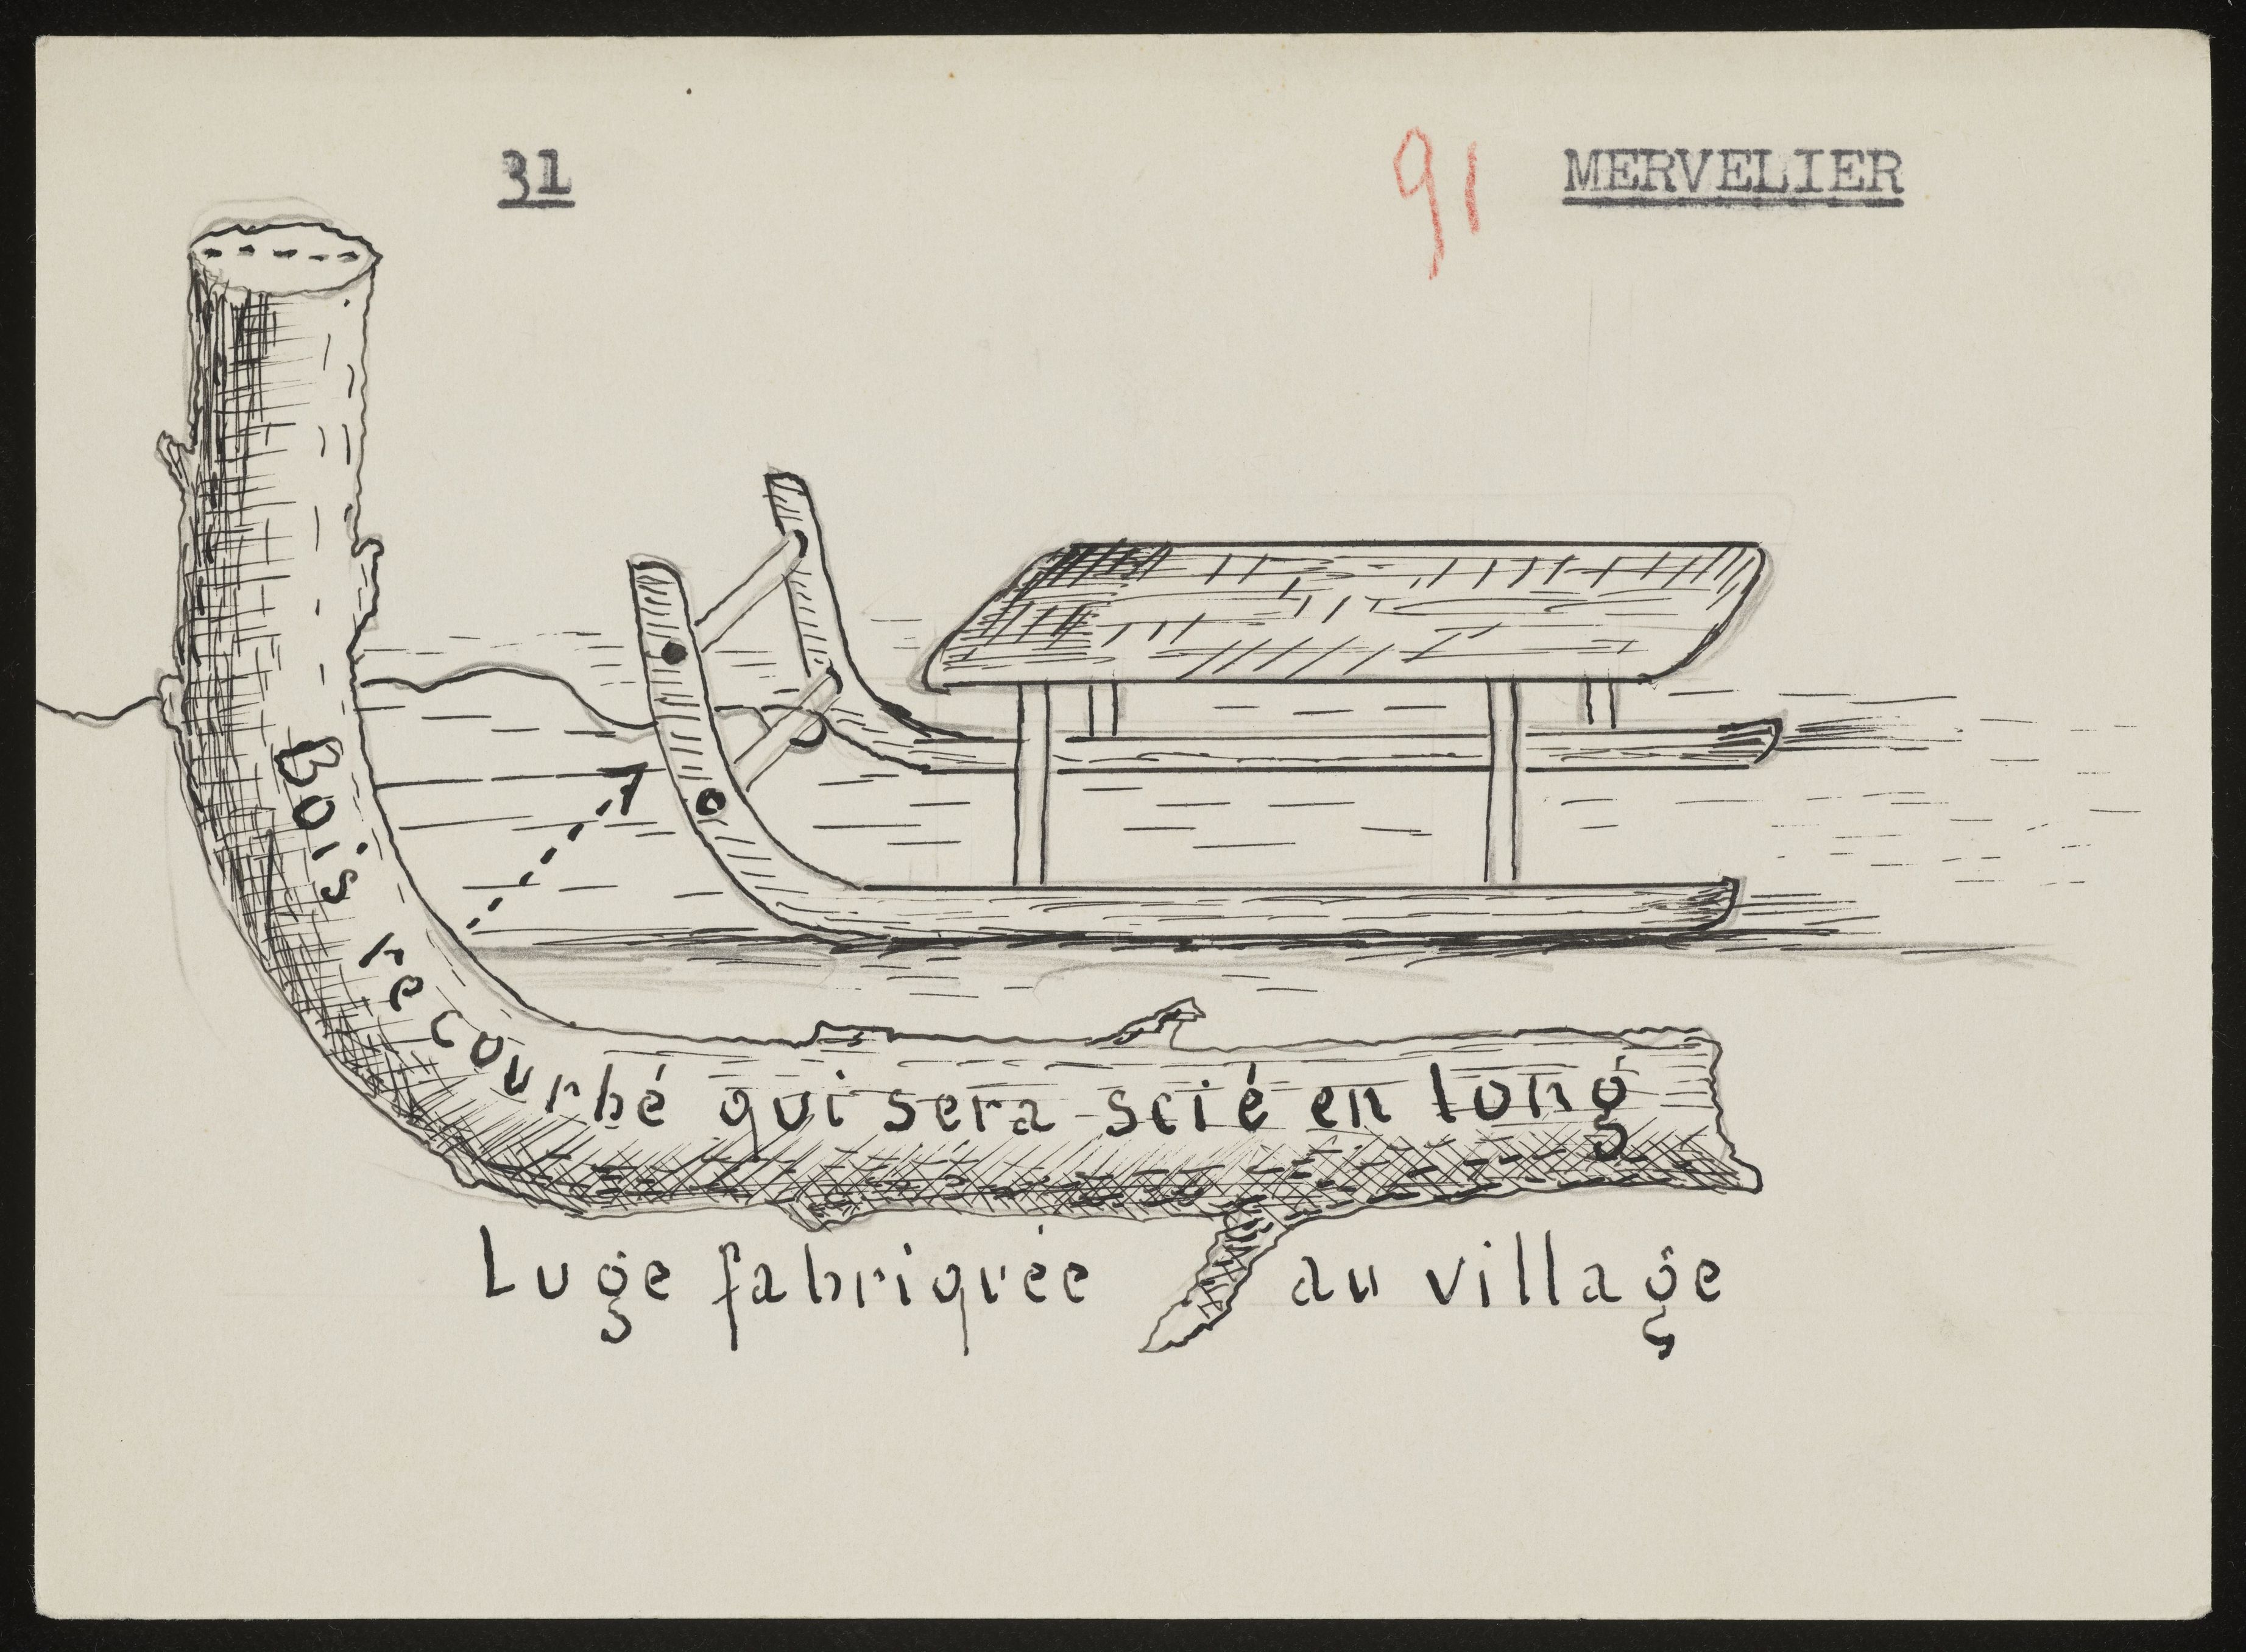 31
91 MERVELIER
Bois recourbé qui sera scié en long
Luge fabriquée au village